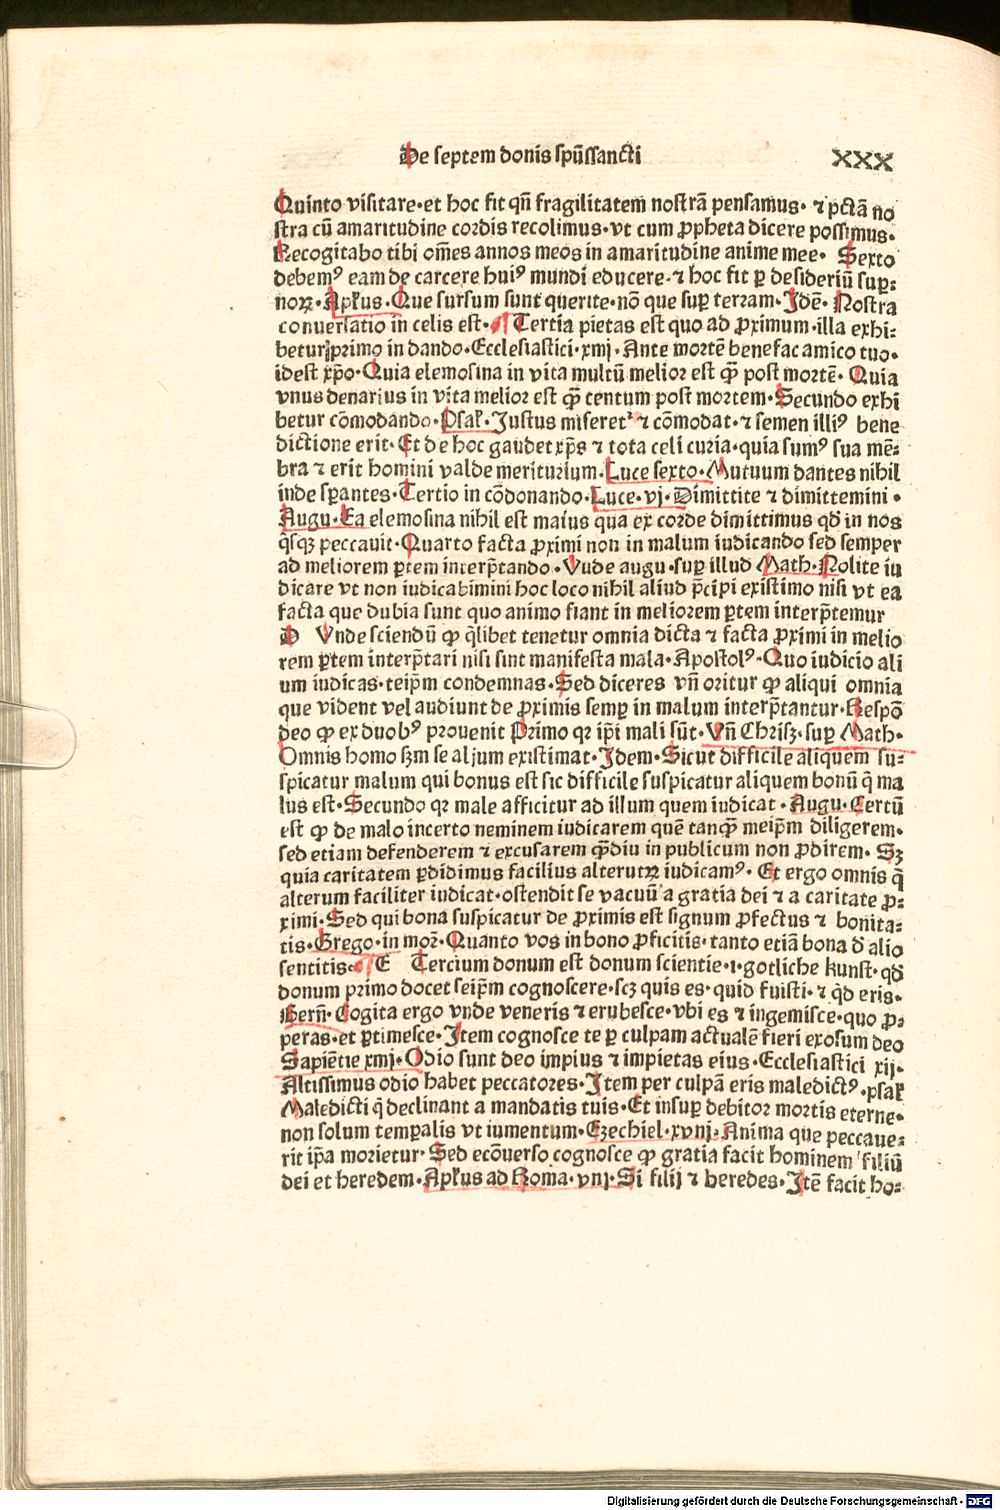 De septem donis spūssancti XXX
Quinto visitare·et hoc fit qñ fragilitatem nostrā pensamus· ⁊ pctā no
stra cū amaritudine cordis recolimus·vt cum ꝓpheta dicere possimus·
Recogitabo tibi om̄es annos meos in amaritudine anime mee· Sexto
debemꝰ eam de carcere huiꝰ mundi educere·⁊ hoc fit ꝑ desideriū suꝑ-
noꝝ·Apłus·Que sursum sunt querite·nō que suꝑ terram·Idē·Nostra
conuersatio in celis est· Tertia pietas est quo ad ꝓximum·illa exhi-
betur primo in dando·Ecclesiastici·xiiij·Ante mortē benefac amico tuo·
idest xp̄o·Quia elemosina in vita multū melior est ꝙ̄ post mortē· Quia
vnus denarius in vita melior est ꝙ̄ centum post mortem·Secundo exhi
betur cōmodando·Psał·Justus miseretᷣ ⁊ cōmodat·⁊ semen illiꝰ bene
dictione erit·Et de hoc gaudet xp̄s ⁊ tota celi curia·quia sumꝰ sua mē-
bra ⁊ erit homini valde meriturium·Luce sexto·Mutuum dantes nihil
inde sꝑantes·Tertio in cōdonando·Luce·vj·Dimittite ⁊ dimittemini·
Augu·Ea elemosina nihil est maius qua ex corde dimittimus qđ in nos
q̇sqꝫ peccauit·Quarto facta ꝓximi non in malum iudicando sed semper
ad meliorem ꝑtem interp̄tando·Vude augu·suꝑ illud Math·Nolite iu
dicare vt non iudicabimini hoc loco nihil aliud p̄cipi existimo nisi vt ea
facta que dubia sunt quo animo fiant in meliorem ꝑtem interp̄temur
D Vnde sciendū ꝙ q̇libet tenetur omnia dicta ⁊ facta ꝓximi in melio
rem ꝑtem interp̄tari nisi sint manifesta mala·Apostolꝰ·Quo iudicio ali
um iudicas·teip̄m condemnas·Sed diceres vñ oritur ꝙ aliqui omnia
que vident vel audiunt de ꝓximis semꝑ in malum interp̄tantur·Respō
deo ꝙ ex duobꝰ prouenit Primo qꝛ ip̄i mali sūt·Vñ Chrisꝫ·suꝑ Math·
Omnis homo sꝫm se alium existimat·Idem·Sicut difficile aliquem su-
spicatur malum qui bonus est sic difficile suspicatur aliquem bonū q̇ ma
lus est·Secundo qꝛ male afficitur ad illum quem iudicat·Augu·Certū
est ꝙ de malo incerto neminem iudicarem quē tanꝙ̄ meip̄m diligerem·
sed etiam defenderem ⁊ excusarem ꝙ̄diu in publicum non ꝓdirem· Sꝫ
quia caritatem ꝑdidimus facilius alterutꝝ iudicamꝰ· Et ergo omnis q̄
alterum faciliter iudicat·ostendit se vacuū a gratia dei ⁊ a caritate ꝓ-
ximi·Sed qui bona suspicatur de ꝓximis est signum ꝓfectus ⁊ bonita-
tis·Grego·in moꝝ·Quanto vos in bono ꝓficitis·tanto etiā bona đ alio
sentitis· E Tercium donum est donum scientie·i·gotliche kunst·qđ
donum primo docet seip̄m cognoscere·scꝫ quis es·quid fuisti·⁊ q̇d eris·
Berñ·Cogita ergo vnde veneris ⁊ erubesce·vbi es ⁊ ingemisce·quo ꝓ-
peras·et ꝑtimesce·Item cognosce te ꝑ culpam actualē fieri exosum deo
Sapiētie xiiij·Odio sunt deo impius ⁊ impietas eius·Ecclesiastici xij·
Altissimus odio habet peccatores·Item per culpā eris maledictꝰ·psał
Maledicti q̇ declinant a mandatis tuis·Et insuꝑ debitor mortis eterne·
non solum temꝑalis vt iumentum·Ezechiel·xviij·Anima que peccaue-
rit ip̄a morietur·Sed ecōuerso cognosce ꝙ gratia facit hominem filiū
dei et heredem·Apłus ad Roma·viij·Si filij ⁊ heredes·Itē facit ho-
Digitalisierung gefördert durch die Deutsche Forschungsgemeinschaft - DFG